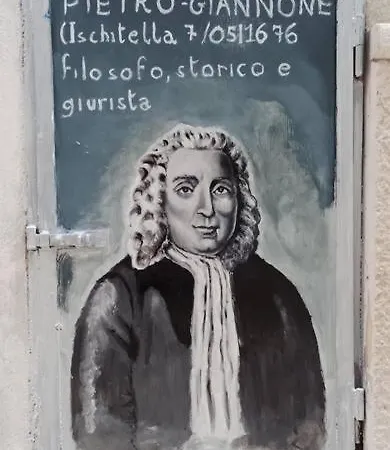 PIETRO-GIANNONE
(Ischitella 7/05/1676
filosofo, storico e
giurista